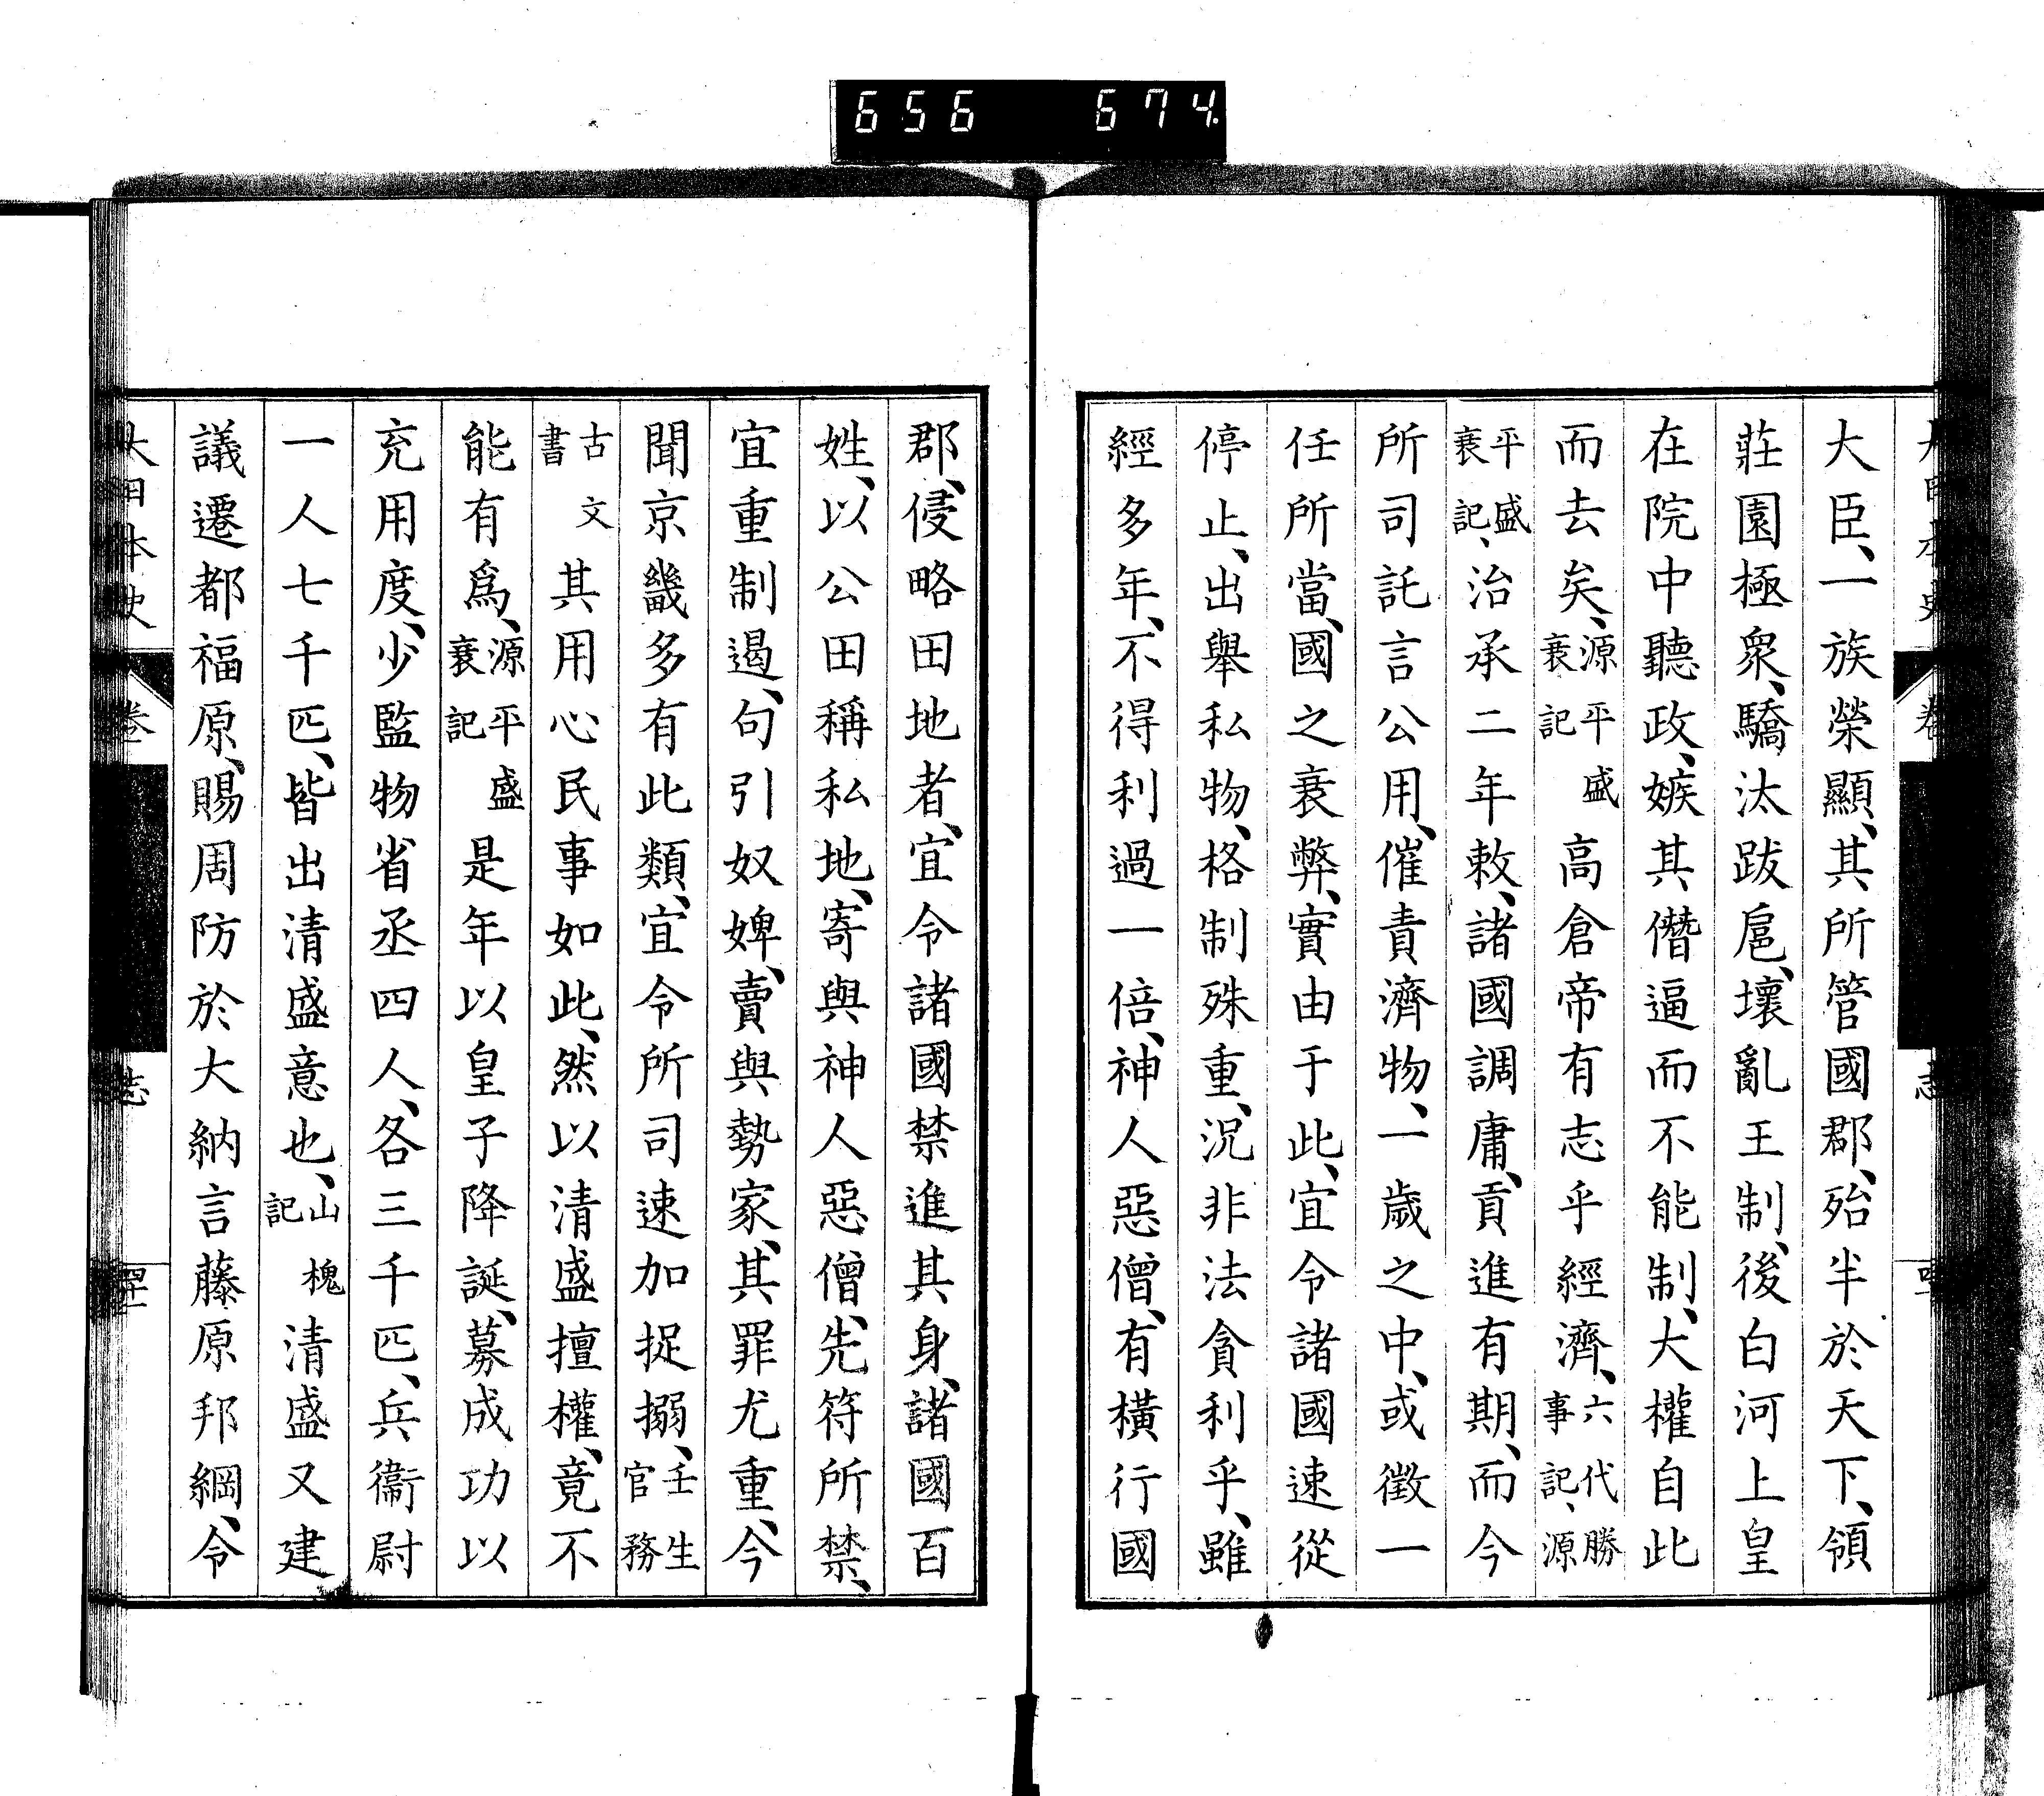 656 674
大日本史 卷 志
大臣、一族榮顯、其所管國郡、殆半於天下、領
莊園極衆、驕汰跋扈、壞亂王制、後白河上皇
在院中聽政、嫉其僭逼而不能制、大權自此
而去矣、源平盛衰記高倉帝有志乎經濟、六代勝事記、源
平盛衰記、治承二年敕、諸國調庸、貢進有期、而今
所司託言公用、催責濟物、一歲之中、或徵一
任所當、國之衰弊、實由于此、宜令諸國速從
停止、出舉私物、格制殊重、況非法貪利乎、雖
經多年、不得利過一倍、神人惡僧、有橫行國
郡、侵略田地者、宜令諸國禁進其身、諸國百
姓、以公田稱私地、寄與神人惡僧、先符所禁、
宜重制遏、句引奴婢、賣與勢家、其罪尤重、今
聞京畿多有此類、宜令所司速加捉搦、壬生官務
古文書其用心民事如此、然以清盛擅權、竟不
能有爲、源平盛衰記是年以皇子降誕、募成功以
充用度、少監物省丞四人、各三千匹、兵衞尉
一人七千匹、皆出清盛意也、山槐記清盛又建
議遷都福原、賜周防於大納言藤原邦綱、令
大日本史 卷 志